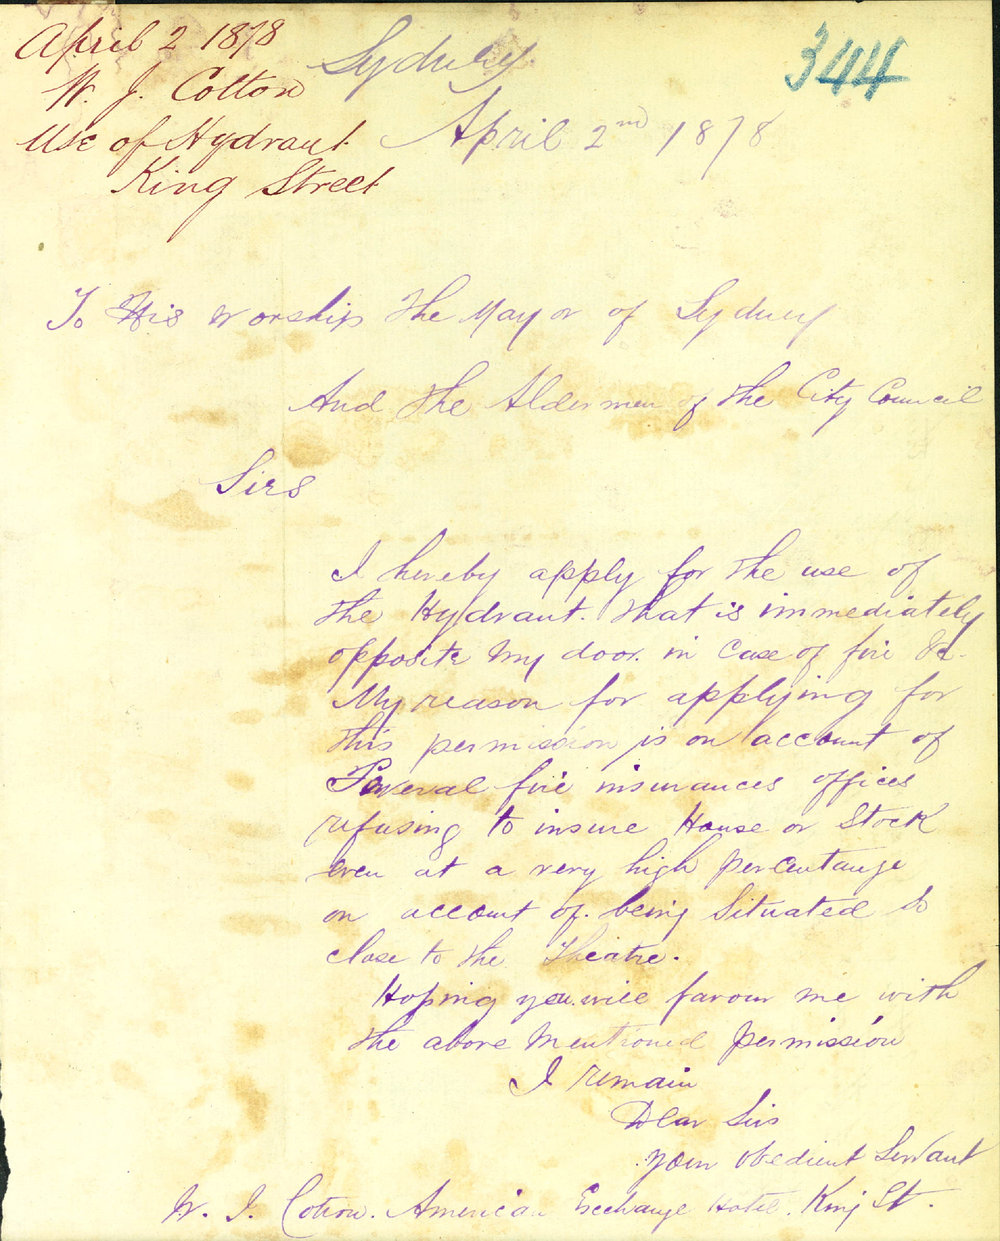 April 2 1878
W. J. Cotton
Use of Hydrant
King Street
344
Sydney
April 2nd 1878
To His Worship The Mayor of Sydney
And The Aldermen of The City Council
Sirs
I hereby apply for the use of
the Hydrant. that is immediately
opposite my door. in Case of fire &c.
My reason for applying for
this permission is on account of
Several fire insurances offices
refusing to insure House or Stock
even at a very high percentange
on account of. being Situated so
close to the Theatre.
Hoping you will favour me with
the above mentioned permission
I remain
Dear Sirs
your obedient Servant
W. J. Cotton. American Exchange Hotel. King St.